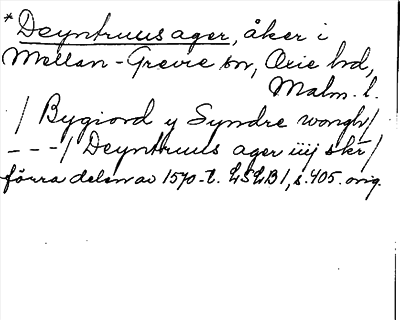 *Deyntruus ager, åker i
Mellan-Grevie sn, Oxie hd,
Malm. l.
/ Bygiord y Syndre wongh/
---/ Deyntruus ager iiij skr/
förra delen av 1570-t. LSLB1, s. 405. orig.